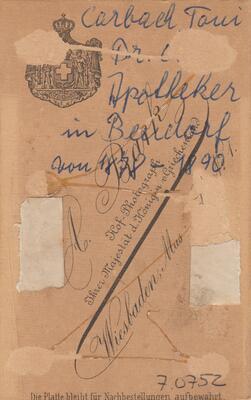 Carbach Toni
Dr. E.
Apotheker
in Bendorf
von 18 1890.
A. Bark
Hof-Photograph
Ihrer Majestät d. Königin v. Griechenland
1
Wiesbaden, Mus
7.0752
Die Platte bleibt für Nachbestellungen aufbewahrt.